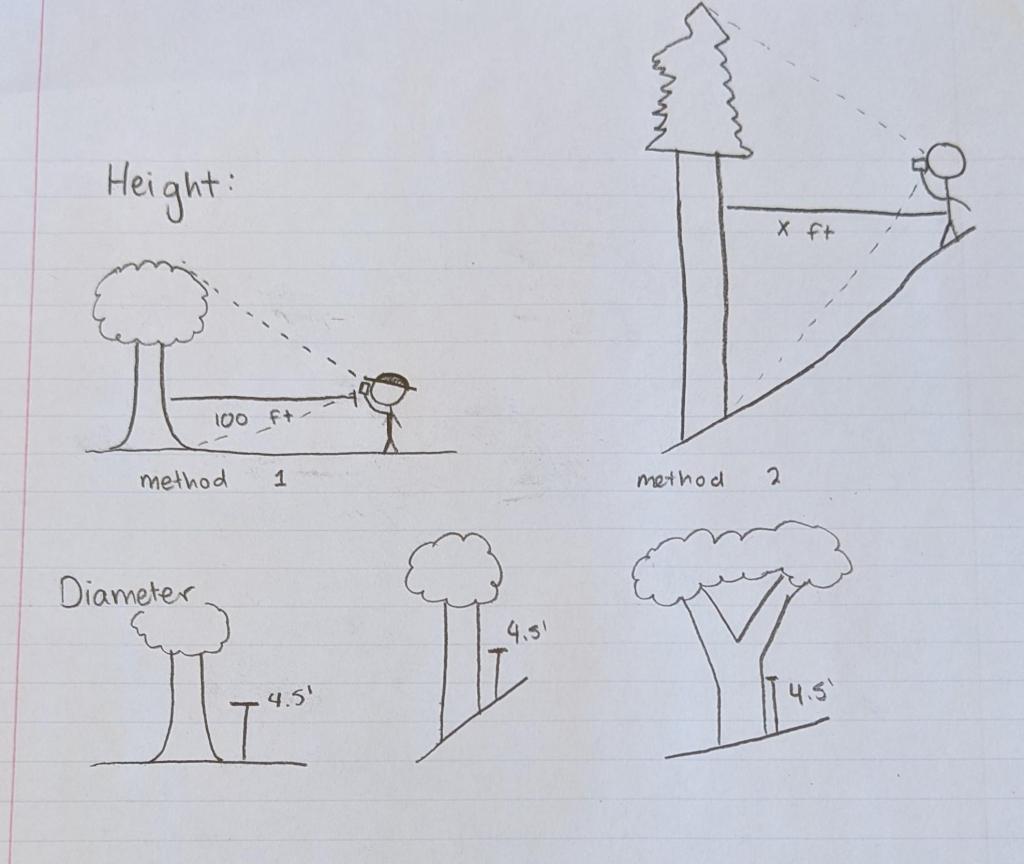 Height:
x ft
100 ft
method 1
method 2
Diameter
4.5'
4.5'
4.5'